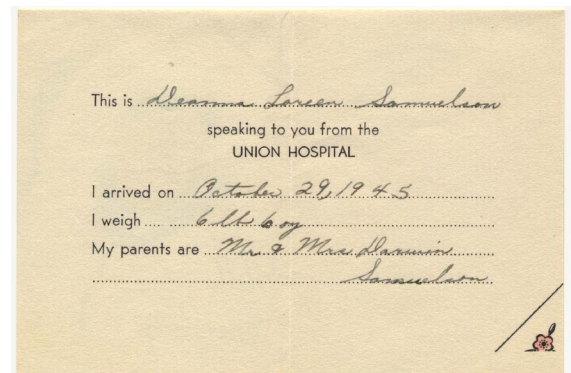 This is Deanna Loreen Samuelson
speaking to you from the
UNION HOSPITAL
I arrived on October 29, 1945
I weigh 6 lb 6 oz
My parents are Mr & Mrs Darwin
Samuelson